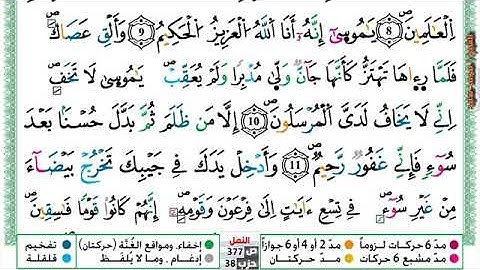 اِ۬لْعَٰلَمِينَۖ 8 يَٰمُوسَىٰٓ إِنَّهُۥٓ أَنَا اَ۬للَّهُ اُ۬لْعَزِيزُ اُ۬لْحَكِيمُۖ 9 وَأَلْقِ عَصَاكَۖ
فَلَمَّا رَءِاهَا تَهْتَزُّ كَأَنَّهَا جَآنّٞ وَلَّىٰ مُدْبِراٗ وَلَمْ يُعَقِّبْۖ يَٰمُوسَىٰ لَا تَخَفِۖ
اِنِّے لَا يَخَافُ لَدَيَّ اَ۬لْمُرْسَلُونَۖ 10 إِلَّا مَن ظَلَمَ ثُمَّ بَدَّلَ حُسْناَۢ بَعْدَ
سُوٓءٖ فَإِنِّے غَفُورٞ رَّحِيمٞۖ 11 وَأَدْخِلْ يَدَكَ فِے جَيْبِكَ تَخْرُجْ بَيْضَآءَ
مِنْ غَيْرِ سُوٓءٖۖ فِے تِسْعِ ءَايَٰتٍ إِلَىٰ فِرْعَوْنَ وَقَوْمِهِۦٓۖ إِنَّهُمْ كَانُواْ قَوْماٗ فَٰسِقِينَۖ
مدّ 6 حركات لزوماً مدّ 2 أو 4 أو 6 جوازاً النمل ص 377 إخفاء، ومواقع الغُنَّة (حركتان) تفخيم
مدّ 6 حركات مدّ حركتان حزب 38 إدغام، وما لا يُلفَظ قلقلة